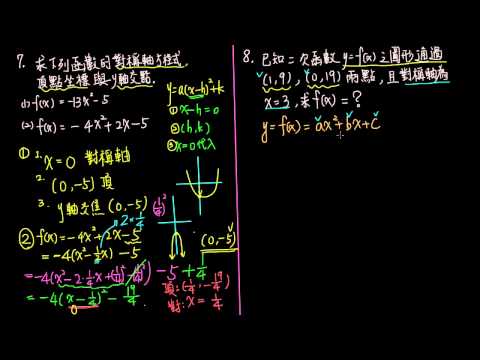 7. 求下列函數的對稱軸方程式、
頂點坐標與y軸交點.
(1) f(x) = -13x² - 5
(2) f(x) = -4x² + 2x - 5
y = a(x-h)² + k
① x - h = 0
② (h, k)
③ x = 0 代入
① 1. x = 0 對稱軸
2. (0, -5) 頂
3. y軸交焦 (0, -5)
② f(x) = -4x² + 2x - 5
= -4(x² - ½x) - 5
2 · ¼
(¼)²
= -4(x² - 2·¼x + (¼)² - (¼)²) - 5 + ¼
= -4(x - ¼)² - 19/4
0
(0, -5)
頂: (¼, -19/4)
對: x = ¼
8. 已知二次函數 y = f(x) 之圖形通過
(1, 9), (0, 19) 兩點, 且對稱軸為
x = 3, 求 f(x) = ?
y = f(x) = ax² + bx + c